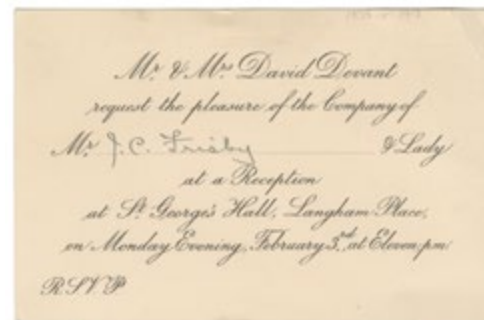 Mr. & Mrs. David Devant
request the pleasure of the Company of
Mr. J. C. Frisby & Lady
at a Reception
at St. George's Hall, Langham Place,
on Monday Evening, February 3rd, at Eleven p.m.
R.S.V.P